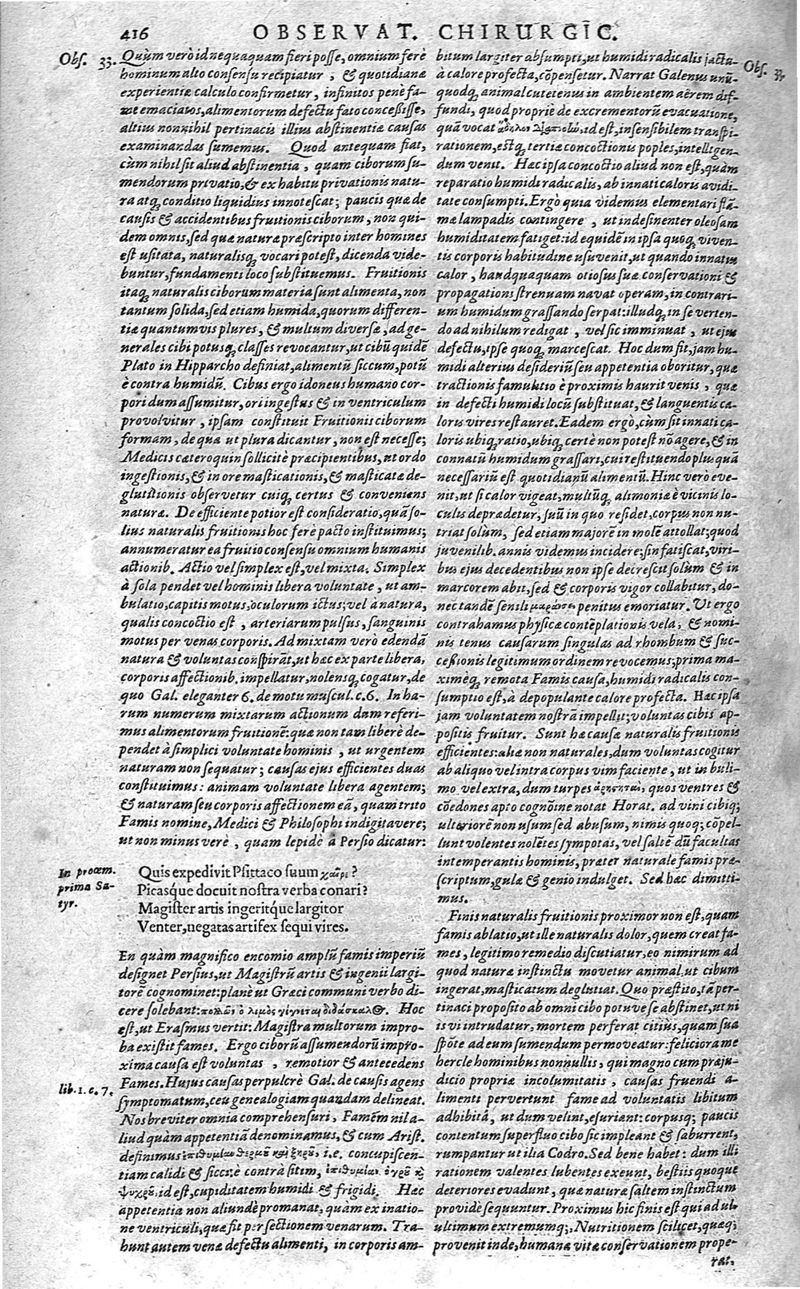 416 OBSERVAT. CHIRURGIC.
Obs. 33.
Quùm verò id nequaquam fieri posse, omnium ferè
hominum alto consensu recipiatur, & quotidianæ
experientiæ calculo confirmetur, infinitos penè fa-
me emaciatos, alimentorum defectu fato concessisse,
altius nonnihil pertinacis illius abstinentiæ causas
examinandas sumemus. Quod antequam fiat,
cùm nihil sit aliud abstinentia, quam ciborum su-
mendorum privatio, & ex habitu privationis natu-
ra atq; conditio liquidius innotescat; paucis quæ de
causis & accidentibus fruitionis ciborum, non qui-
dem omnis, sed quæ naturæ præscripto inter homines
est usitata, naturalisq; vocari potest, dicenda vide-
buntur, fundamenti loco substituemus. Fruitionis
itaq; naturalis ciborum materia sunt alimenta, non
tantum solida, sed etiam humida, quorum differen-
tiæ quantumvis plures, & multum diversæ, ad ge-
nerales cibi potusq; classes revocantur, ut cibũ quidẽ
Plato in Hipparcho definiat, alimentũ siccum, potũ
è contra humidũ. Cibus ergo idoneus humano cor-
pori dum assumitur, ori ingestus & in ventriculum
provolvitur, ipsam constituit Fruitionis ciborum
formam, de qua ut plura dicantur, non est necesse;
Medicis cæteroquin sollicitè præcipientibus, ut ordo
ingestionis, & in ore masticationis, & masticatæ de-
glutitionis observetur cuiq; certus & conveniens
naturæ. De efficiente potior est consideratio, quã so-
lius naturalis fruitionis hoc ferè pacto instituimus;
annumeratur ea fruitio consensu omnium humanis
actionib. Actio vel simplex est, vel mixta. Simplex
à sola pendet vel hominis libera voluntate, ut am-
bulatio, capitis motus, oculorum ictus; vel à natura,
qualis concoctio est, arteriarum pulsus, sanguinis
motus per venas corporis. Ad mixtam verò edendã
natura & voluntas conspirãt, ut hæc ex parte libera,
corporis affectionib. impellatur, nolensq; cogatur, de
quo Gal. eleganter 6. de motu muscul. c. 6. In ha-
rum numerum mixtarum actionum dum referi-
mus alimentorum fruitionẽ: quæ non tam liberè de-
pendet à simplici voluntate hominis, ut urgentem
naturam non sequatur; causas ejus efficientes duas
constituimus: animam voluntate libera agentem;
& naturam seu corporis affectionem eã, quam trito
Famis nomine, Medici & Philosophi indigitavere;
ut non minus verè, quam lepidè à Persio dicatur:
In proœm.
prima Sa-
tyr.
Quis expedivit Psittaco suum χαῖρε?
Picasque docuit nostra verba conari?
Magister artis ingeritque largitor
Venter, negatas artifex sequi vires.
En quàm magnifico encomio amplũ famis imperiũ
designet Persius, ut Magistrũ artis & ingenii largi-
torẽ cognominet: planè ut Græci communi verbo di-
cere solebant: πολλῶν ὁ λιμὸς γίγνεται διδάσκαλος. Hoc
est, ut Erasmus vertit: Magistra multorum impro-
ba existit fames. Ergo ciborũ assumendorũ impro-
xima causa est voluntas, remotior & antecedens
lib. 1. c. 7.
Fames. Hujus causas perpulcrè Gal. de causis agens
symptomatum, ceu genealogiam quandam delineat.
Nos breviter omnia comprehensuri, Famẽm nil a-
liud quàm appetentiã denominamus, & cum Arist.
definimus ἐπιθυμίαν θερμοῦ καὶ ξηροῦ, i.e. concupiscen-
tiam calidi & sicci: è contrà sitim, ἐπιθυμίαν ὑγροῦ καὶ
ψυχροῦ, id est, cupiditatem humidi & frigidi. Hæc
appetentia non aliundè promanat, quàm ex inatio-
ne ventriculi, quæ fit per sectionem venarum. Tra-
hunt autem venæ defectu alimenti, in corporis am-
Obs. 33.
bitum largiter absumpti, ut humidi radicalis jactu-
à calore profecta, cõpensetur. Narrat Galenus unũ-
quodq; animal cutetenus in ambientem aërem dif-
fundi, quod propriè de excrementorũ evacuatione,
quã vocat ἄδηλον διαπνοὴν, id est, insensibilem transpi-
rationem, estq; tertiæ concoctionis poples, intelligen-
dum venit. Hæc ipsa concoctio aliud non est, quàm
reparatio humidi radicalis, ab innati caloris avidi-
tate consumpti. Ergò quia videmus elementari flã-
mæ lampadis contingere, ut indesinenter oleosam
humiditatem fatiget: id equidẽ in ipsa quoq; viven-
tis corporis habitudine usuvenit, ut quando innatus
calor, haudquaquam otiosus suæ conservationi &
propagationi strenuam navat operam, in contrari-
um humidum grassando serpat: illudq; in se verten-
do ad nihilum redigat, vel sic imminuat, ut ejus
defectu, ipse quoq; marcescat. Hoc dum fit, jam hu-
midi alterius desideriũ seu appetentia oboritur, quæ
tractionis famulitio è proximis haurit venis, quæ
in defecti humidi locũ substituat, & languentis ca-
loris vires restauret. Eadem ergò, cùm sit innati ca-
loris ubiq; ratio, ubiq; certè non potest nõ agere, & in
connatũ humidum grassari, cui restituendo plus quã
necessariũ est quotidianũ alimentũ. Hinc verò eve-
nit, ut si calor vigeat, multũq; alimoniæ è vicinis lo-
culis deprædetur, suũ in quo residet, corpus non nu-
triat solùm, sed etiam majorẽ in molẽ attollat: quod
juvenilib. annis videmus incidere; sin fatiscat, viri-
bus ejus decedentibus non ipse decrescit solùm & in
marcorem abit, sed & corporis vigor collabitur, do-
nec tandẽ senili μαρασμῷ penitus emoriatur. Ut ergo
contrahamus physicæ contẽplationis vela, & nomi-
nis tenus causarum singulas ad rhombum & suc-
cessionis legitimum ordinem revocemus; prima ma-
ximèq; remota Famis causa, humidi radicalis con-
sumptio est, à depopulante calore profecta. Hæc ipsa
jam voluntatem nostrã impellit; voluntas cibis ap-
positis fruitur. Sunt hæ causæ naturalis fruitionis
efficientes: aliæ non naturales, dum voluntas cogitur
ab aliquo vel intra corpus vim faciente, ut in buli-
mo vel extra, dum turpes quos ventres &
cõedones apto cognõine notat Horat. ad vini cibiq;
ulteriorẽ non usum sed abusum, nimis quoq; cõpel-
lunt volentes nolẽtes sympotas, vel saltẽ dũ facultas
intemperantis hominis, præter naturale famis præ-
scriptum, gulæ & genio indulget. Sed hæc dimitti-
mus.
Finis naturalis fruitionis proximor non est, quam
famis ablatio, ut ille naturalis dolor, quem creat fa-
mes, legitimo remedio discutiatur; eo nimirum ad
quod naturæ instinctu movetur animal, ut cibum
ingerat, masticatum deglutiat. Quo præstito, tã per-
tinaci proposito ab omni cibo potuve se abstinet, ut ni
is vi intrudatur, mortem perferat citiùs, quam sua
spõte ad eum sumendum permoveatur: felicior a me
hercle hominibus nonnullis, qui magno cum præju-
dicio propriæ incolumitatis, causas fruendi a-
limenti pervertunt fame ad voluntatis libitum
adhibitâ, ut dum velint, esuriant: corpusq; paucis
contentum superfluo cibo sic impleant & saburrent,
rumpantur ut ilia Codro. Sed bene habet: dum illi
rationem valentes lubentes exeunt, bestiis quoque
deteriores evadunt, quæ naturæ saltem instinctum
providè sequuntur. Proximus hic finis est qui ad ul-
ultimum extremumq;, Nutritionem scilicet, quæq;
provenit inde, humanæ vitæ conservationem prope-
rat.